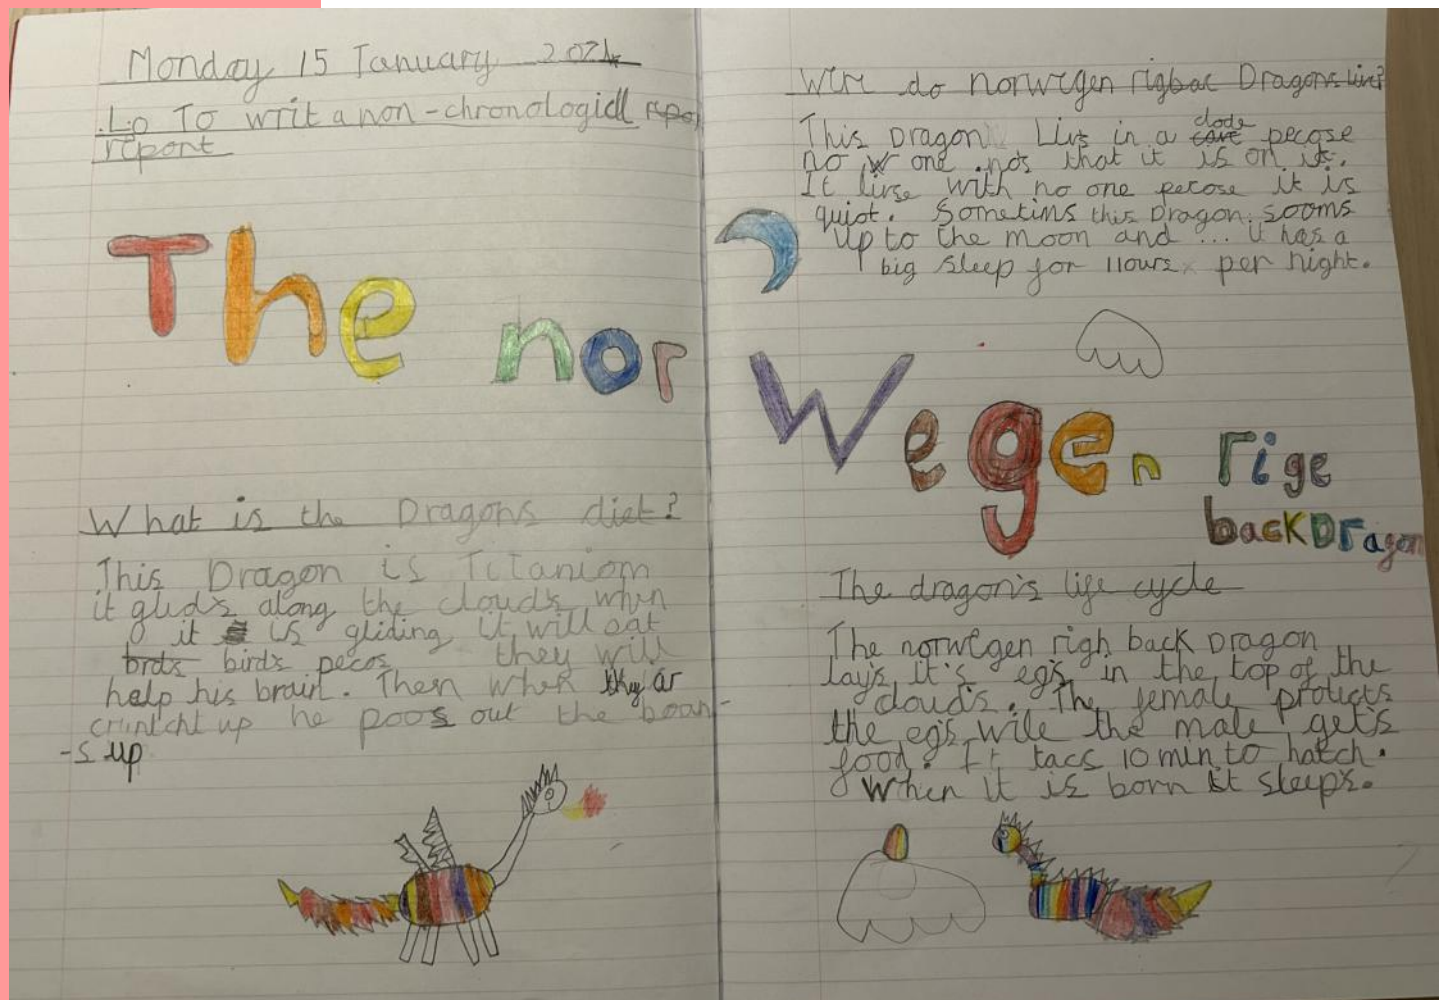 Monday 15 January 2024
Lo To writ a non-chronologicll repo
report
The nor
Wegen rige
backDragon
What is the Dragons diet?
This Dragon is TiTaniom
it glids along the clouds when
it is gliding it will eat
brds birds pecos they will
help his brain. Then when they ar
cruntcht up he poos out the boan-
-s up
Wire do norwegen rigbac Dragons live?
This Dragon Livs in a clode cave pecose
no w one nos that it is on it.
It livse with no one pecose it is
quiot. Sometims this Dragon sooms
up to the moon and ... it has a
big sleep for 11ours per night.
The dragon's life cycle
The norwegen righ back Dragon
lay's it's eg's in the top of the
clouds. The female protects
the eg's wile the male get's
food. It tacs 10 min to hatch.
When it is born it sleeps.